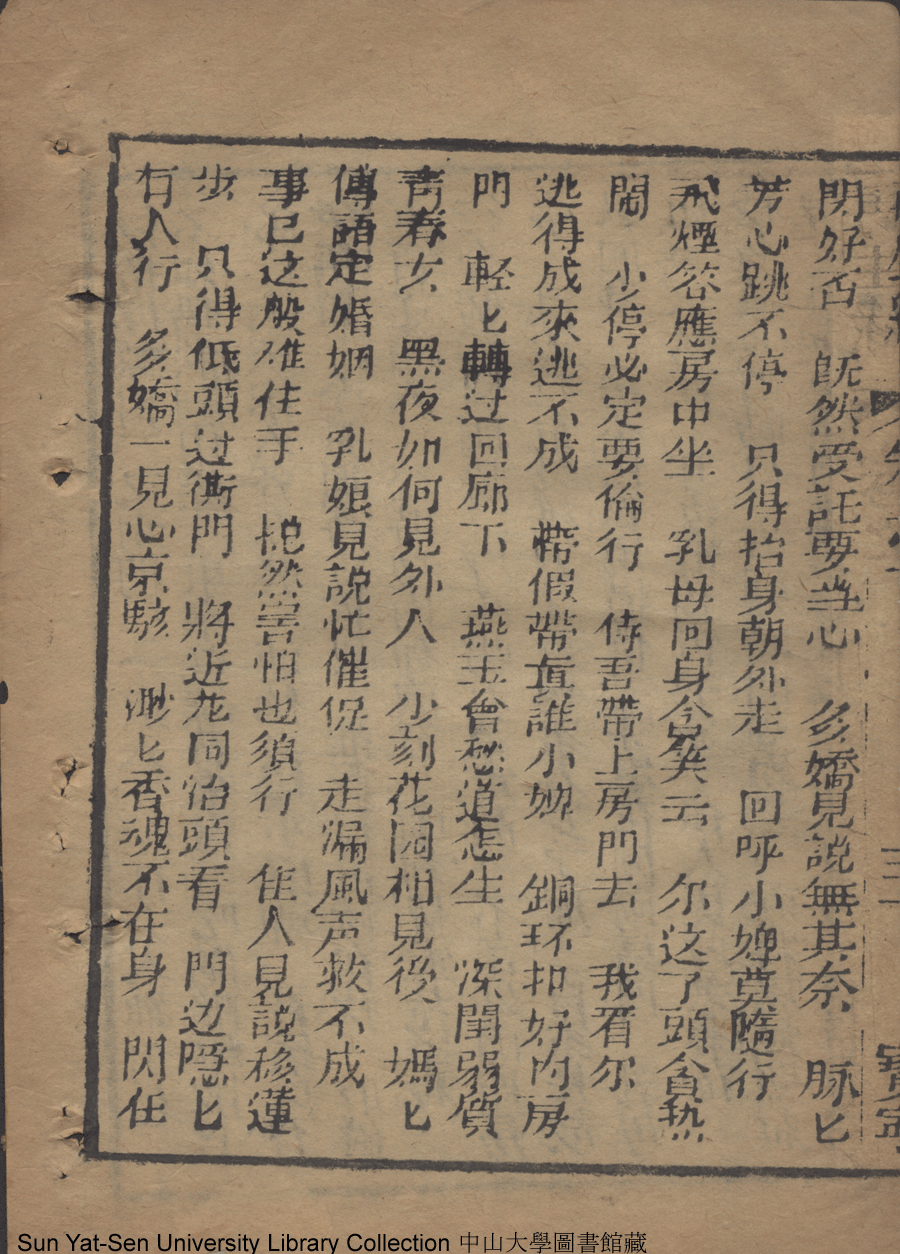 閉好否 既然受託要当心 多嬌見說無其奈 脉匕
芳心跳不停 只得抬身朝外走 回呼小婢莫隨行
飛煙答應房中坐 乳母回身含笑云 尔这了頭貪热
閙 少停必定要偷行 待吾帶上房門去 我看尔
逃得成來逃不成 帶假帶真誰小婢 銅环扣好內房
門 軽匕轉过回廊下 燕玉會愁道怎生 深閨弱質
青春女 黑夜如何見外人 少刻花园相見後 媽匕
傳語定婚姻 乳娘見說忙催促 走漏風声救不成
事已这般难住手 総然害怕也須行 佳人見說移蓮
步 只得低頭过衖門 將近花同怡頭看 門边隱匕
有人行 多嬌一見心京駭 渺匕香魂不在身 閃在
三
Sun Yat-Sen University Library Collection 中山大學圖書館藏